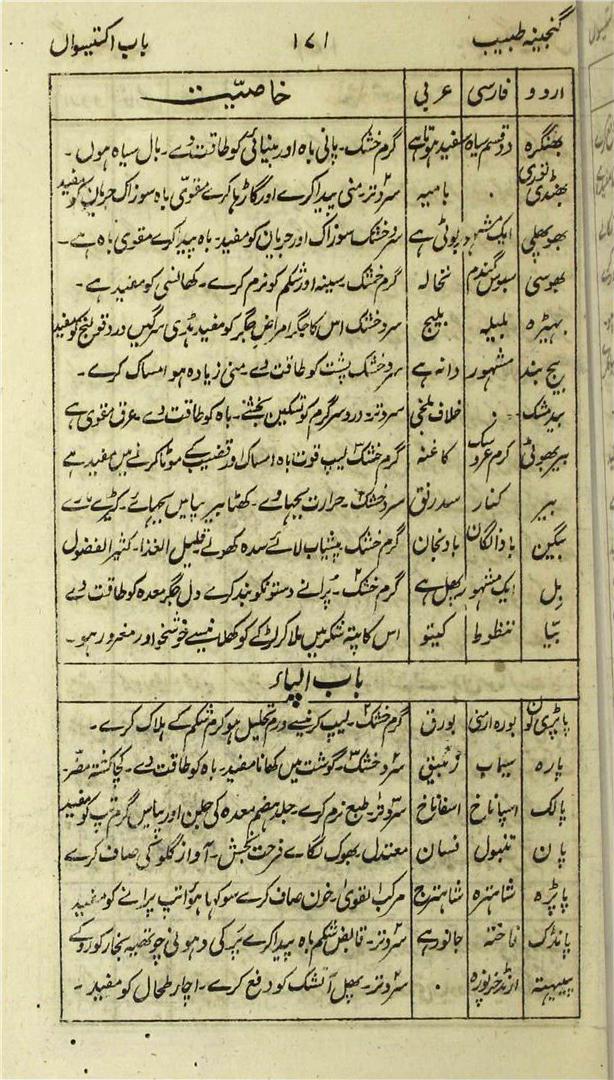 گنجینہ طبیب ۱۷۱ باب اکتیسواں
اردو فارسی عربی خاصیّت
بھنگرہ دو قسم سیاہ سفید ہوتا ہے گرم خشک۔ پانی باہ اور بینائی کو طاقت دے۔ بال سیاہ ہوں۔
بھنڈی توری ۰ بامیہ سرد تر۔ منی پیدا کرے اور گاڑھا کرے مقوّی باہ سوزاک جریان کو مفید
بھوپھلی ایک مشہور بوٹی ہے سرد خشک سوزاک اور جریان کو مفید۔ باہ پیدا کرے مقوی باہ ہے۔
بھوسی سبوس گندم نخالہ گرم خشک۔ سینہ اور شکم کو نرم کرے۔ کھانسی کو مفید ہے۔
بہیڑہ بلیلہ بلیلج سرد خشک اس کا جگر امراض جگر کو مفید
بیج بند مشہور دانہ ہے سرد خشک پشت کو طاقت دے۔ منی زیادہ ہو امساک کرے۔
بیدمشک ۰ خلاف بلخی سرد تر۔ درد سر گرم کو تسکین بخشے۔ باہ کو طاقت دے۔ عرق مقوی ہے
بیربھوٹی کرم عروسک کاغنہ گرم خشک لیپ قوت باہ امساک اور قضیب کے موٹا کرنے میں مفید ہے
بیر کنار سدر نبق سرد خشک۔ حرارت بجھاوے۔ کھٹا بیر پیاس بجھائے۔
بینگن بادانگان بادنجان گرم خشک پیشاب لائے سدہ کھولے قلیل الغذا۔ کثیر الفضول
بل ایک مشہور پھل ہے گرم خشک۔ پرانے دستونکو بند کرے دل جگر معدہ کو طاقت دے
بیّا تنظوط کیتو اس کا پتہ شکر میں ملا کر لڑکے کو کھلانیسے خوشخو اور مغرور ہو۔
باب الپاء
پاپڑی لون بورہ ارمنی بورق گرم خشک۔ لیپ کرنیسے ورم تحلیل ہو کرم شکم کے ہلاک کرے۔
پارہ سیماب زیبق سرد خشک۔ گوشت میں کھانا مفید۔ باہ کو طاقت دے۔ کچا کشتہ مضر۔
پالک اسپاناخ اسفاناخ سرد تر۔ طبع نرم کرے۔ جلد ہضم معدہ کی جلن اور پیاس گرم تپ کو مفید
پان تنبول فسان معتدل بھوک لگائے فرحت بخش۔ آواز گلو کی صاف کرے
پاپڑہ شاہترہ شاہترج مرکب القوی۔ خون صاف کرے سوکھا ہوا تپ پرانے کو مفید
پانڈک فاختہ جانور ہے سرد تر۔ قابض شکم باہ پیدا کرے پر کی دھونی چوتھیہ بخار کو روکے
پپیتہ ارنڈ خربوزہ ۰ سرد تر۔ پھل آتشک کو دفع کرے۔ اچار طحال کو مفید۔